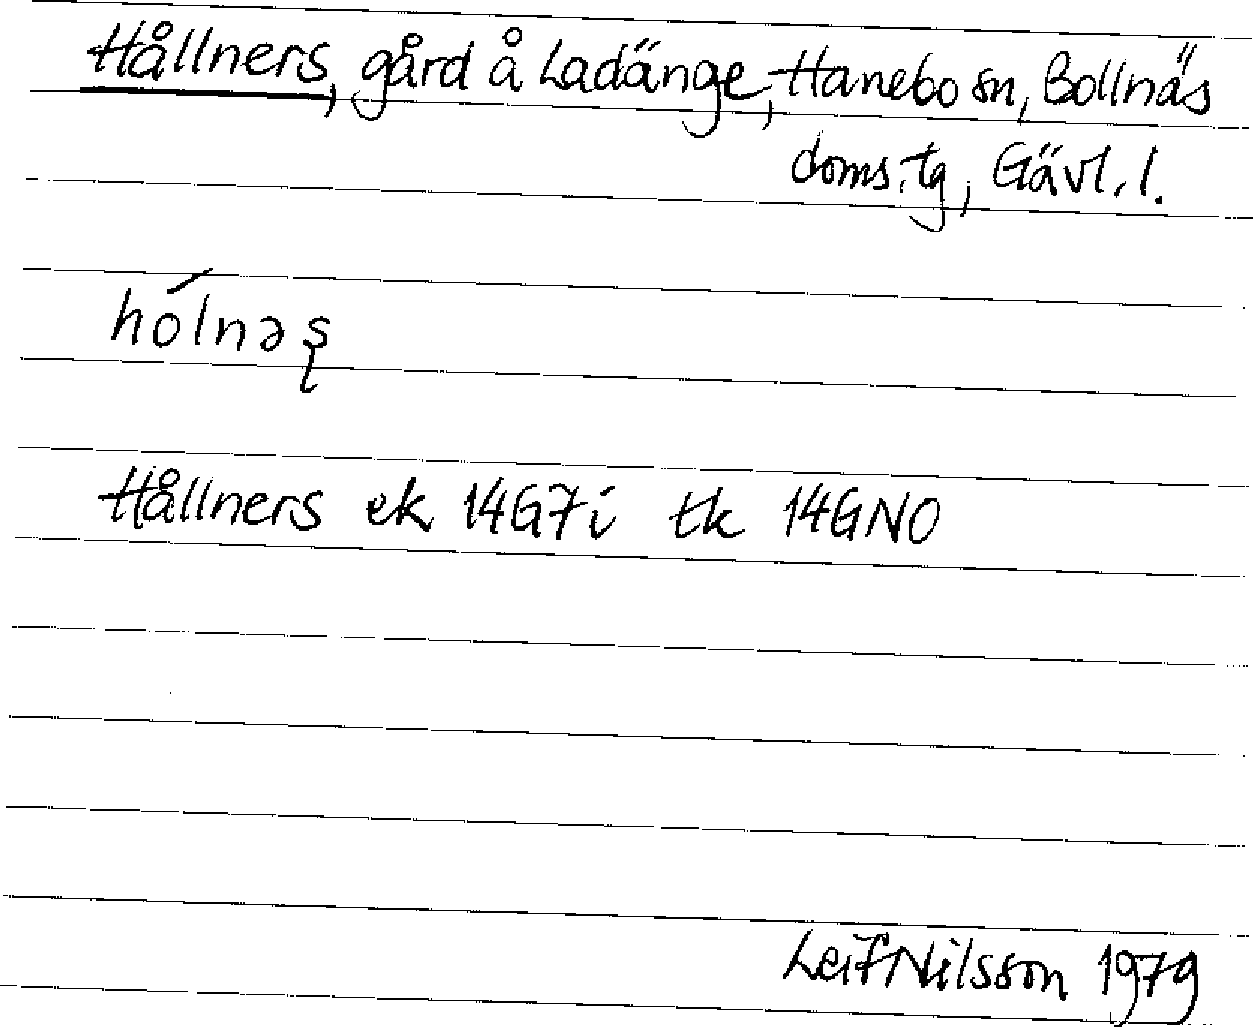 Hållners, gård å Ladänge, Hanebo sn, Bollnäs
doms.tg, Gävl. l.
hólnəʂ
Hållners ek 14G7i tk 14GNO
Leif Nilsson 1979